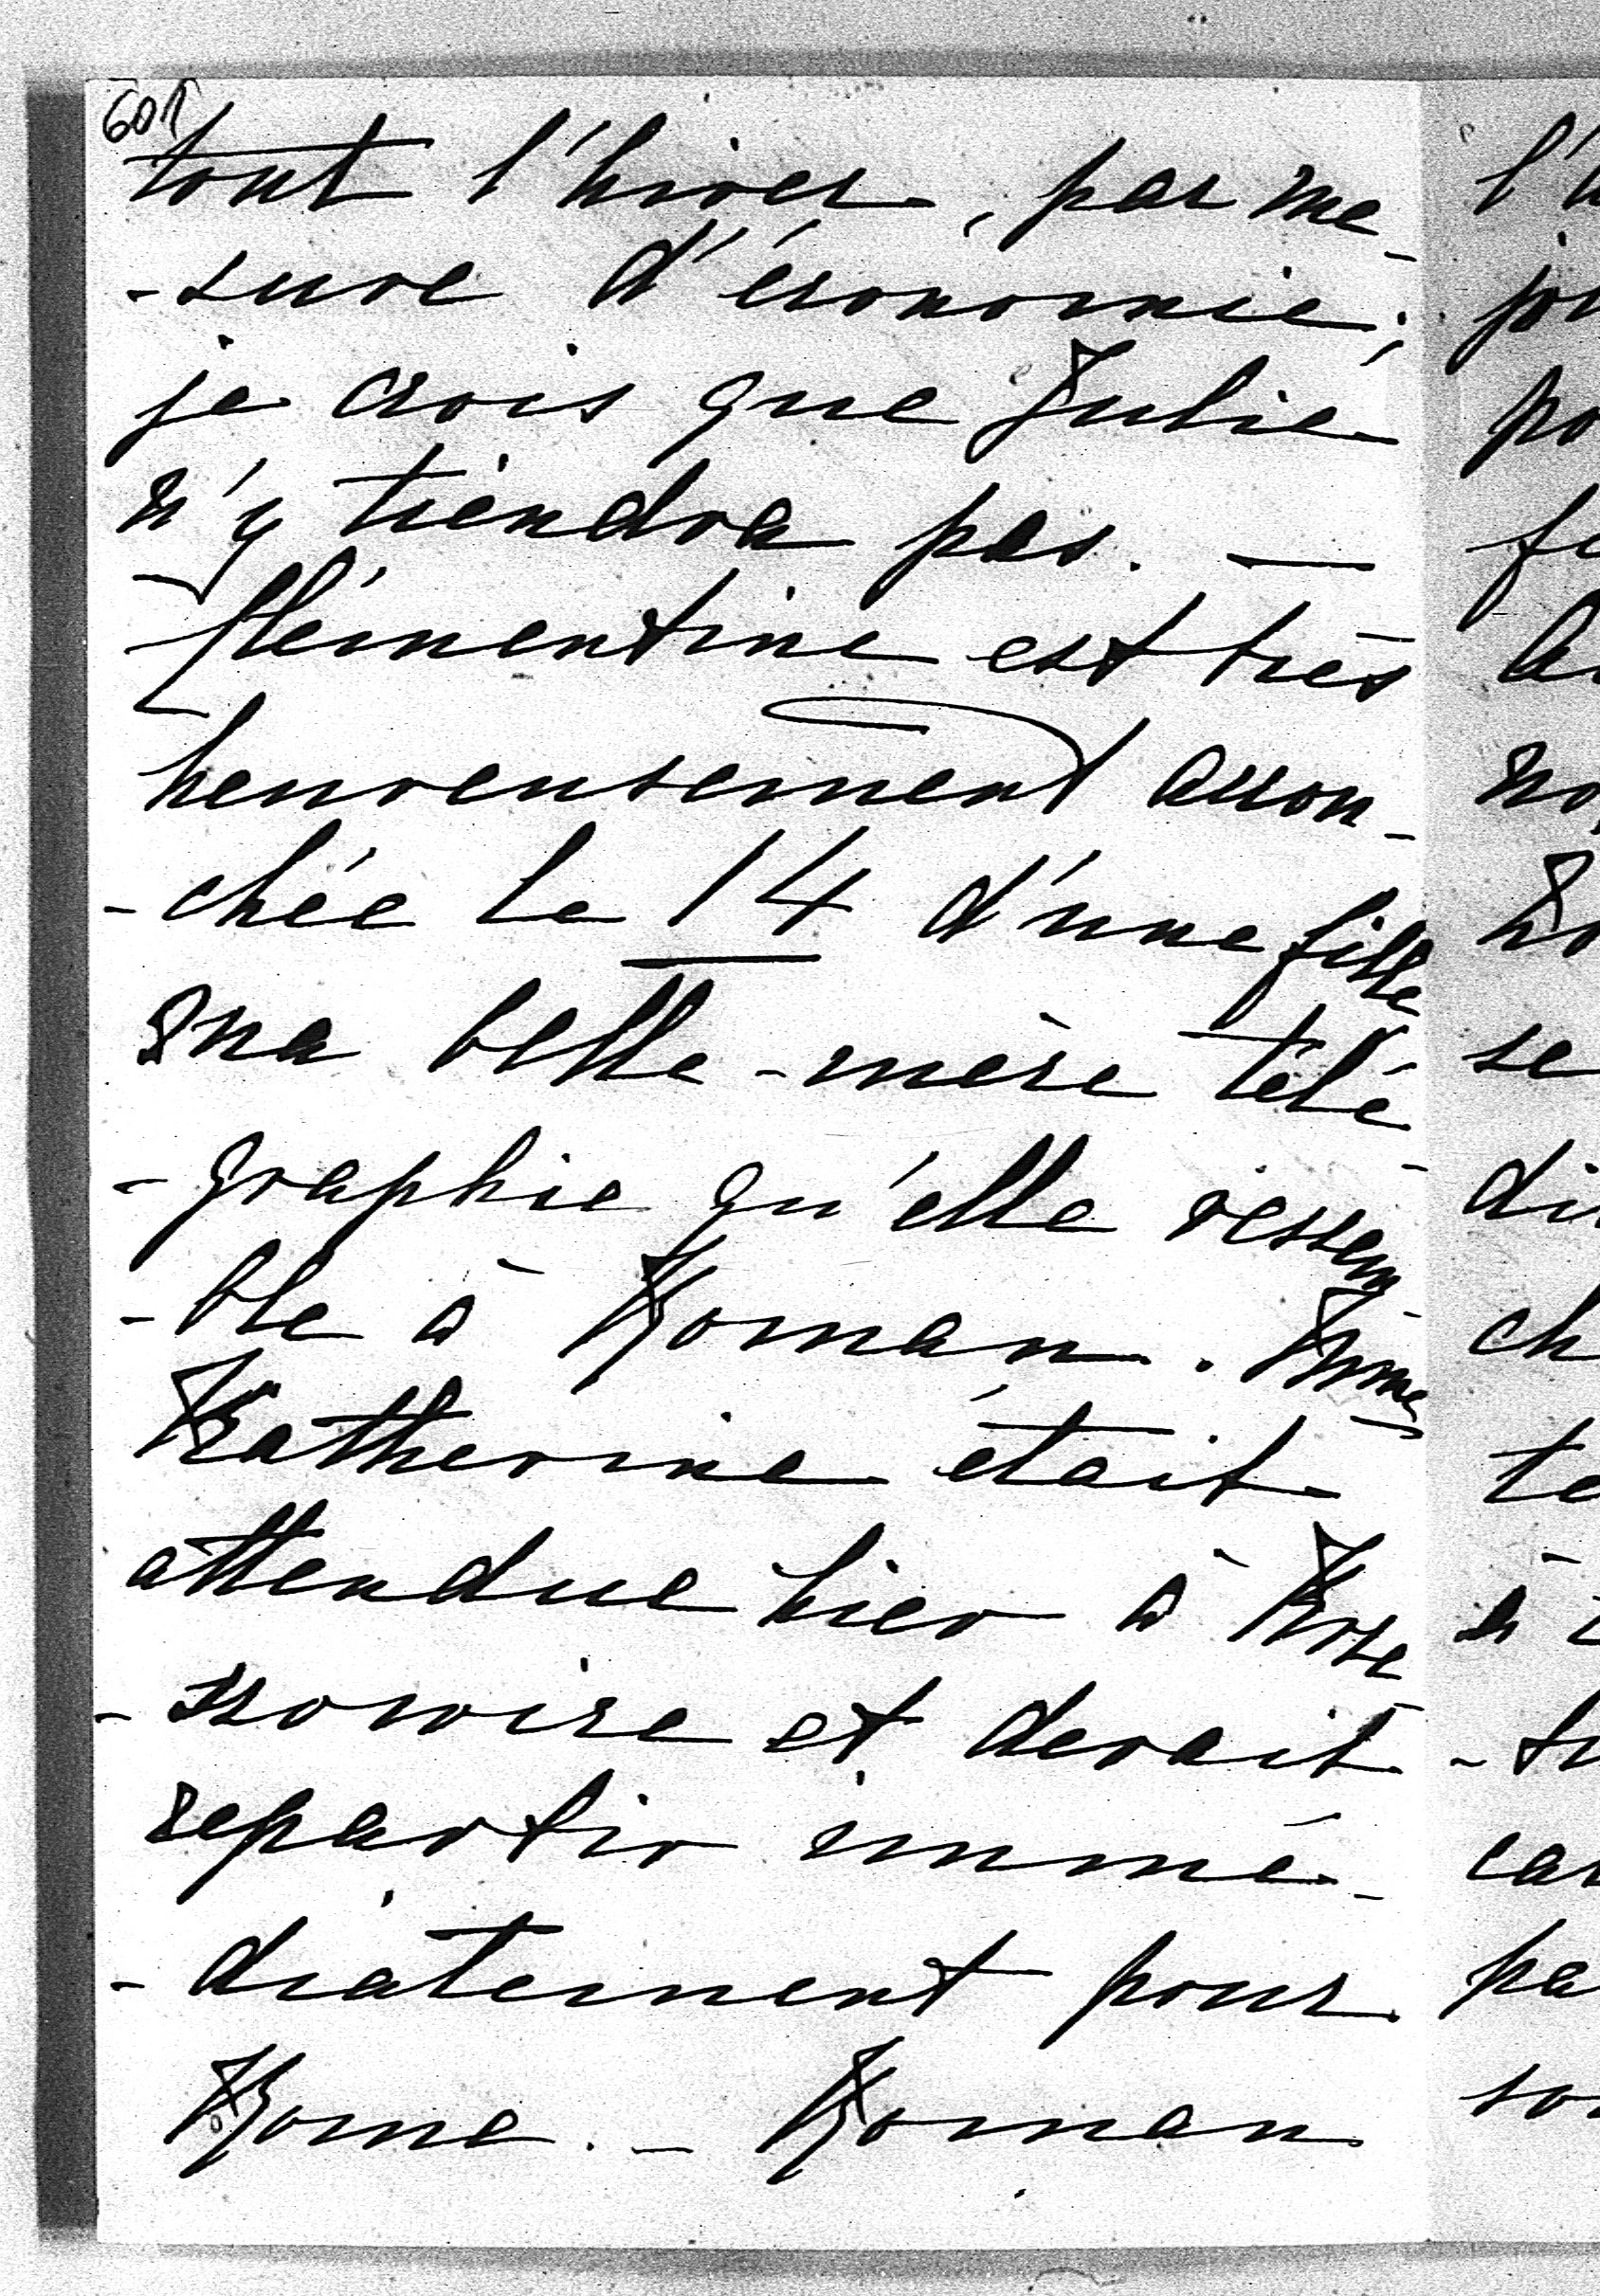 601
tout l'hiver, par me-
-sure d'économie;
je crois que Julie
n'y tiendra pas. —
Clémentine est très
heureusement accou-
-chée le 14 d'une fille
ma belle-mère télé-
-graphie qu'elle ressem-
-ble à Roman. Mme
Katherine était
attendue hier à
et devait
repartir immé-
-diatement pour
Rome. — Roman